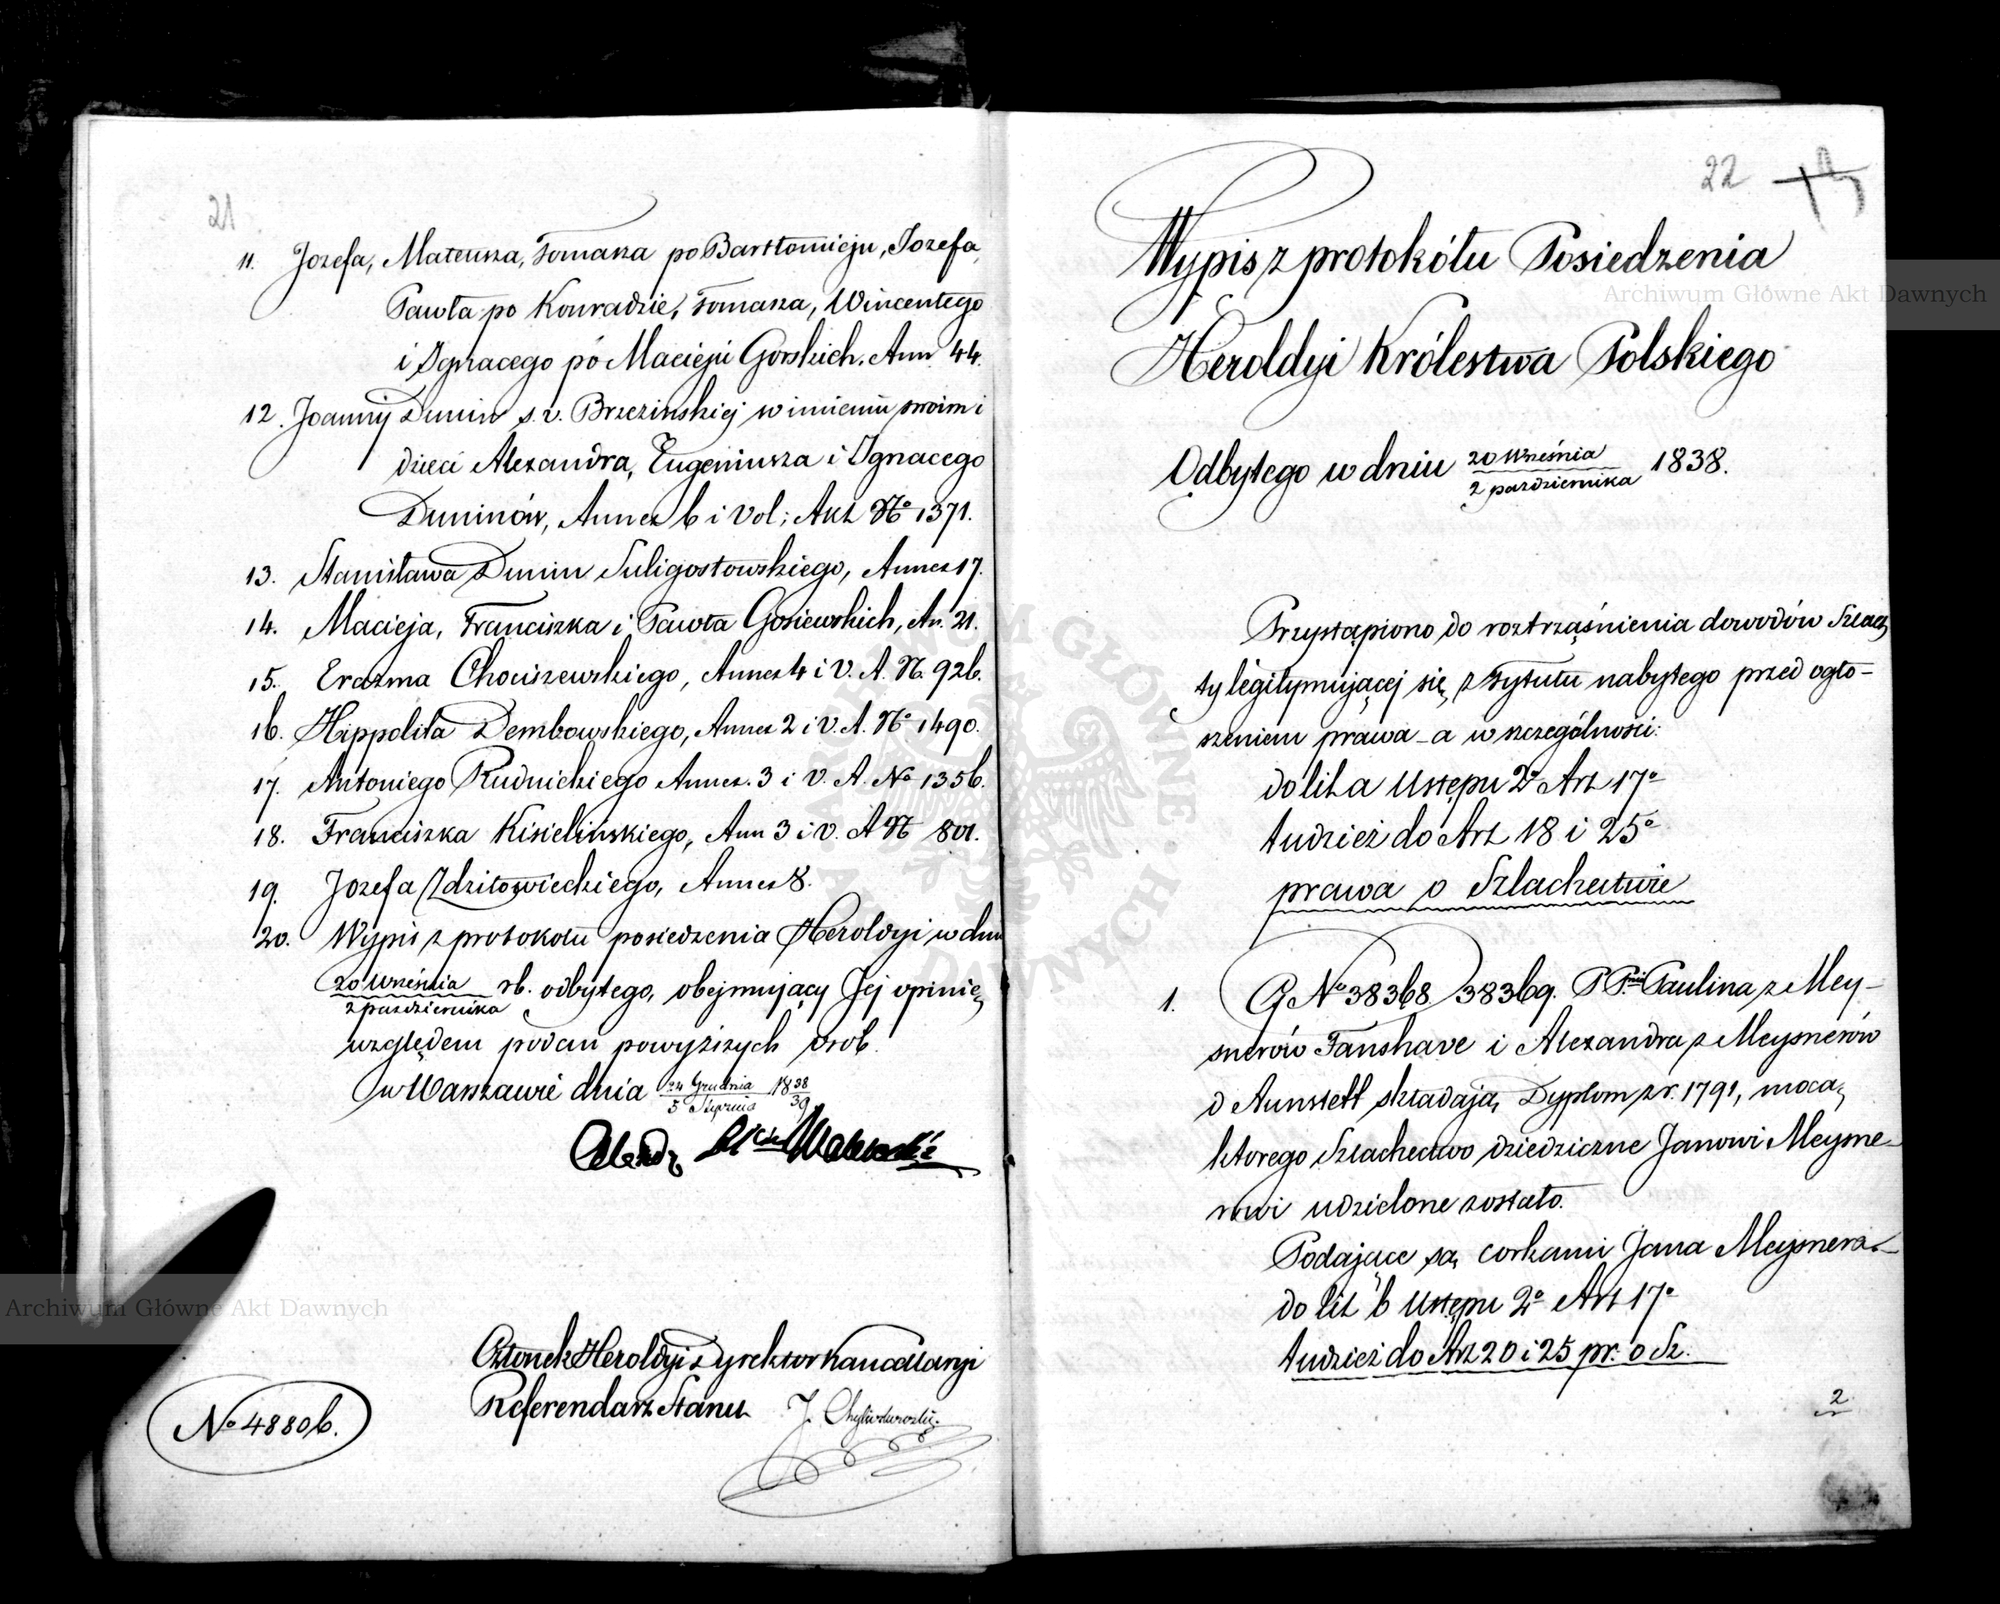 21
11. Józefa, Mateusza, Tomasza po Bartłomieju, Józefa,
Pawła po Konradzie, Tomasza, Wincentego
i Ignacego po Macieju Gorskich. Ann. 44.
12. Joanny Dunin s. v. Brzezinskiej w imieniu swoim i
dzieci Alexandra, Eugeniusza i Ignacego
Duninów, Annex 6 i Vol; Akt No 1371.
13. Stanisława Dunin Suligostowskiego, Annex 17.
14. Macieja, Franciszka i Pawła Gosiewskich, An. 21.
15. Erazma Chociszewskiego, Annex 4 i V. A. N. 926.
16. Hippolita Dembowskiego, Annex 2 i V. A. No 1490.
17. Antoniego Rudnickiego Annex. 3 i V. A. No 1356.
18. Franciszka Kisielińskiego, Ann 3 i V. A N 801.
19. Jozefa Zdzitowieckiego, Annex 8.
20. Wypis z protokołu posiedzenia Heroldyi w dniu
20 Września / 2 października rb. odbytego, obejmujący Jej opinię
względem podań powyższych osób.
w Warszawie dnia 24 Grudnia / 5 Stycznia 1838/39
Członek Heroldyi Dyrektor Kancellaryi
Referendarz Stanu
No 48806.
22
Wypis z protokółu Posiedzenia
Heroldyi Królestwa Polskiego
Odbytego w dniu 20 Września / 2 października 1838.
Przystąpiono do roztrząśnienia dowodów Szlach
ty legitymującej się z tytułu nabytego przed ogło-
szeniem prawa - a w szczególności:
do lit a Ustępu 2o Art 17o
tudzież do Art 18 i 25o
prawa o Szlachectwie
1. G No 38368/38369. P Pnie Paulina z Mey-
snerów Fanshave i Alexandra z Meysnerów
d Aunstett składają Dyplom z r. 1791, mocą
ktorego Szlachectwo dziedziczne Janowi Meysne-
rowi udzielone zostało.
Podające są corkami Jana Meysnera.-
do lit b Ustępu 2o Art 17o
tudzież do Art 20 i 25 pr. o Sz.
2
Archiwum Główne Akt Dawnych
Archiwum Główne Akt Dawnych
ARCHIWUM GŁÓWNE AKT DAWNYCH